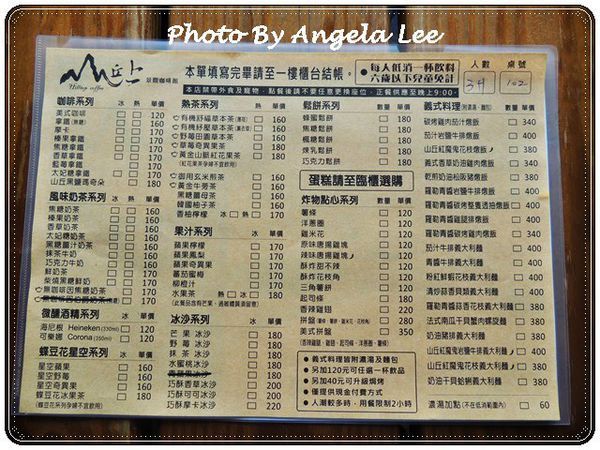 Photo By Angela Lee
山丘上
景觀咖啡館
Hilltop coffee
本單填寫完畢請至一樓櫃台結帳。
●每人低消一杯飲料
六歲以下兒童免計
人數
桌號
102
本店禁帶外食及寵物、點餐後請不要任意更換座位、正餐供應至晚上9:00。
咖啡系列 冰 熱 單價
美式咖啡 120
拿鐵 160
摩卡 170
榛果拿鐵 170
焦糖拿鐵 170
香草拿鐵 170
藍莓拿鐵 170
太妃糖拿鐵 170
山丘黑鹽瑪奇朵 180
風味奶茶系列 冰 熱 單價
焦糖奶茶 170
榛果奶茶 170
香草奶茶 170
太妃糖奶茶 170
黑糖薑汁奶茶 170
抹茶牛奶 170
巧克力牛奶 160
鮮奶茶 170
柴燒黑糖鮮奶 170
黑咖啡因焦糖奶茶 170
微醺酒精系列 單價
海尼根 Heineken(330ml) 120
可樂娜 Corona(350ml) 170
蝶豆花星空系列 單價
星空蘋果 170
星空野莓 180
星空奇異果 180
蝶豆花冰果茶 180
(蝶豆花系列孕婦不宜飲用)
熱茶系列 單價
有機舒福草本茶 160
有機舒壓草本茶 160
野莓田園草本茶 160
草莓奇異果茶 160
黃金山脈紅花果茶 160
(紅花果茶孕婦不宜飲用)
御用玄米煎茶 160
黃金牛蒡茶 160
黑糖薑母茶 160
韓國柚子茶 160
香柚檸檬 冰 熱 160
果汁系列 單價
蘋果檸檬 170
蘋果鳳梨 170
蘋果奇異果 170
蕃茄蜜梅 170
柳橙汁 170
水果茶 冰 熱 180
冰沙系列 單價
芒果冰沙 180
野莓冰沙 180
抹茶冰沙 180
水蜜桃冰沙 180
青蘋果冰沙 180
巧酥香草冰沙 220
巧酥可可冰沙 220
巧酥摩卡冰沙 220
鬆餅系列 數量 單價
蜂蜜鬆餅 180
焦糖鬆餅 180
楓糖鬆餅 180
煉乳鬆餅 180
巧克力鬆餅 180
蛋糕請至臨櫃選購
炸物點心系列 數量 單價
薯條 120
洋蔥圈 120
雞米花 120
原味唐揚雞塊 120
辣味唐揚雞塊 120
酥炸甜不辣 120
酥炸花枝角 120
三角薯餅 120
起司條 180
香辣雞翅 220
拼盤 280
美式拼盤 350
●義式料理皆附濃湯及麵包
●另加120元可任選一杯飲品
●另加40元可升級焗烤
●僅提供現金付費方式
●人潮較多時,用餐限制2小時
義式料理 數量 單價
碳烤雞肉茄汁燉飯 340
茄汁岩鹽牛排燉飯 400
山丘紅魔鬼花枝燉飯 340
義式香草奶油雞肉燉飯 340
乾煎奶油松阪豬燉飯 360
羅勒青醬岩鹽牛排燉飯 400
羅勒青醬碳烤蟹隻透抽燉飯 400
羅勒青醬雞腿排燉飯 400
茄汁牛排義大利麵 400
碳烤香草雞排義大利麵 380
粉紅鮮蝦花枝義大利麵 380
清炒蒜香貝類義大利麵 380
羅勒青醬蒜香花枝義大利麵 380
法式南瓜干貝蟹肉螺旋麵 400
奶油豬排義大利麵 380
山丘紅魔鬼岩鹽牛排義大利麵 400
山丘紅魔鬼花枝義大利麵 380
奶油干貝蛤蜊義大利麵 380
濃湯加點(不在低消範圍內) 60